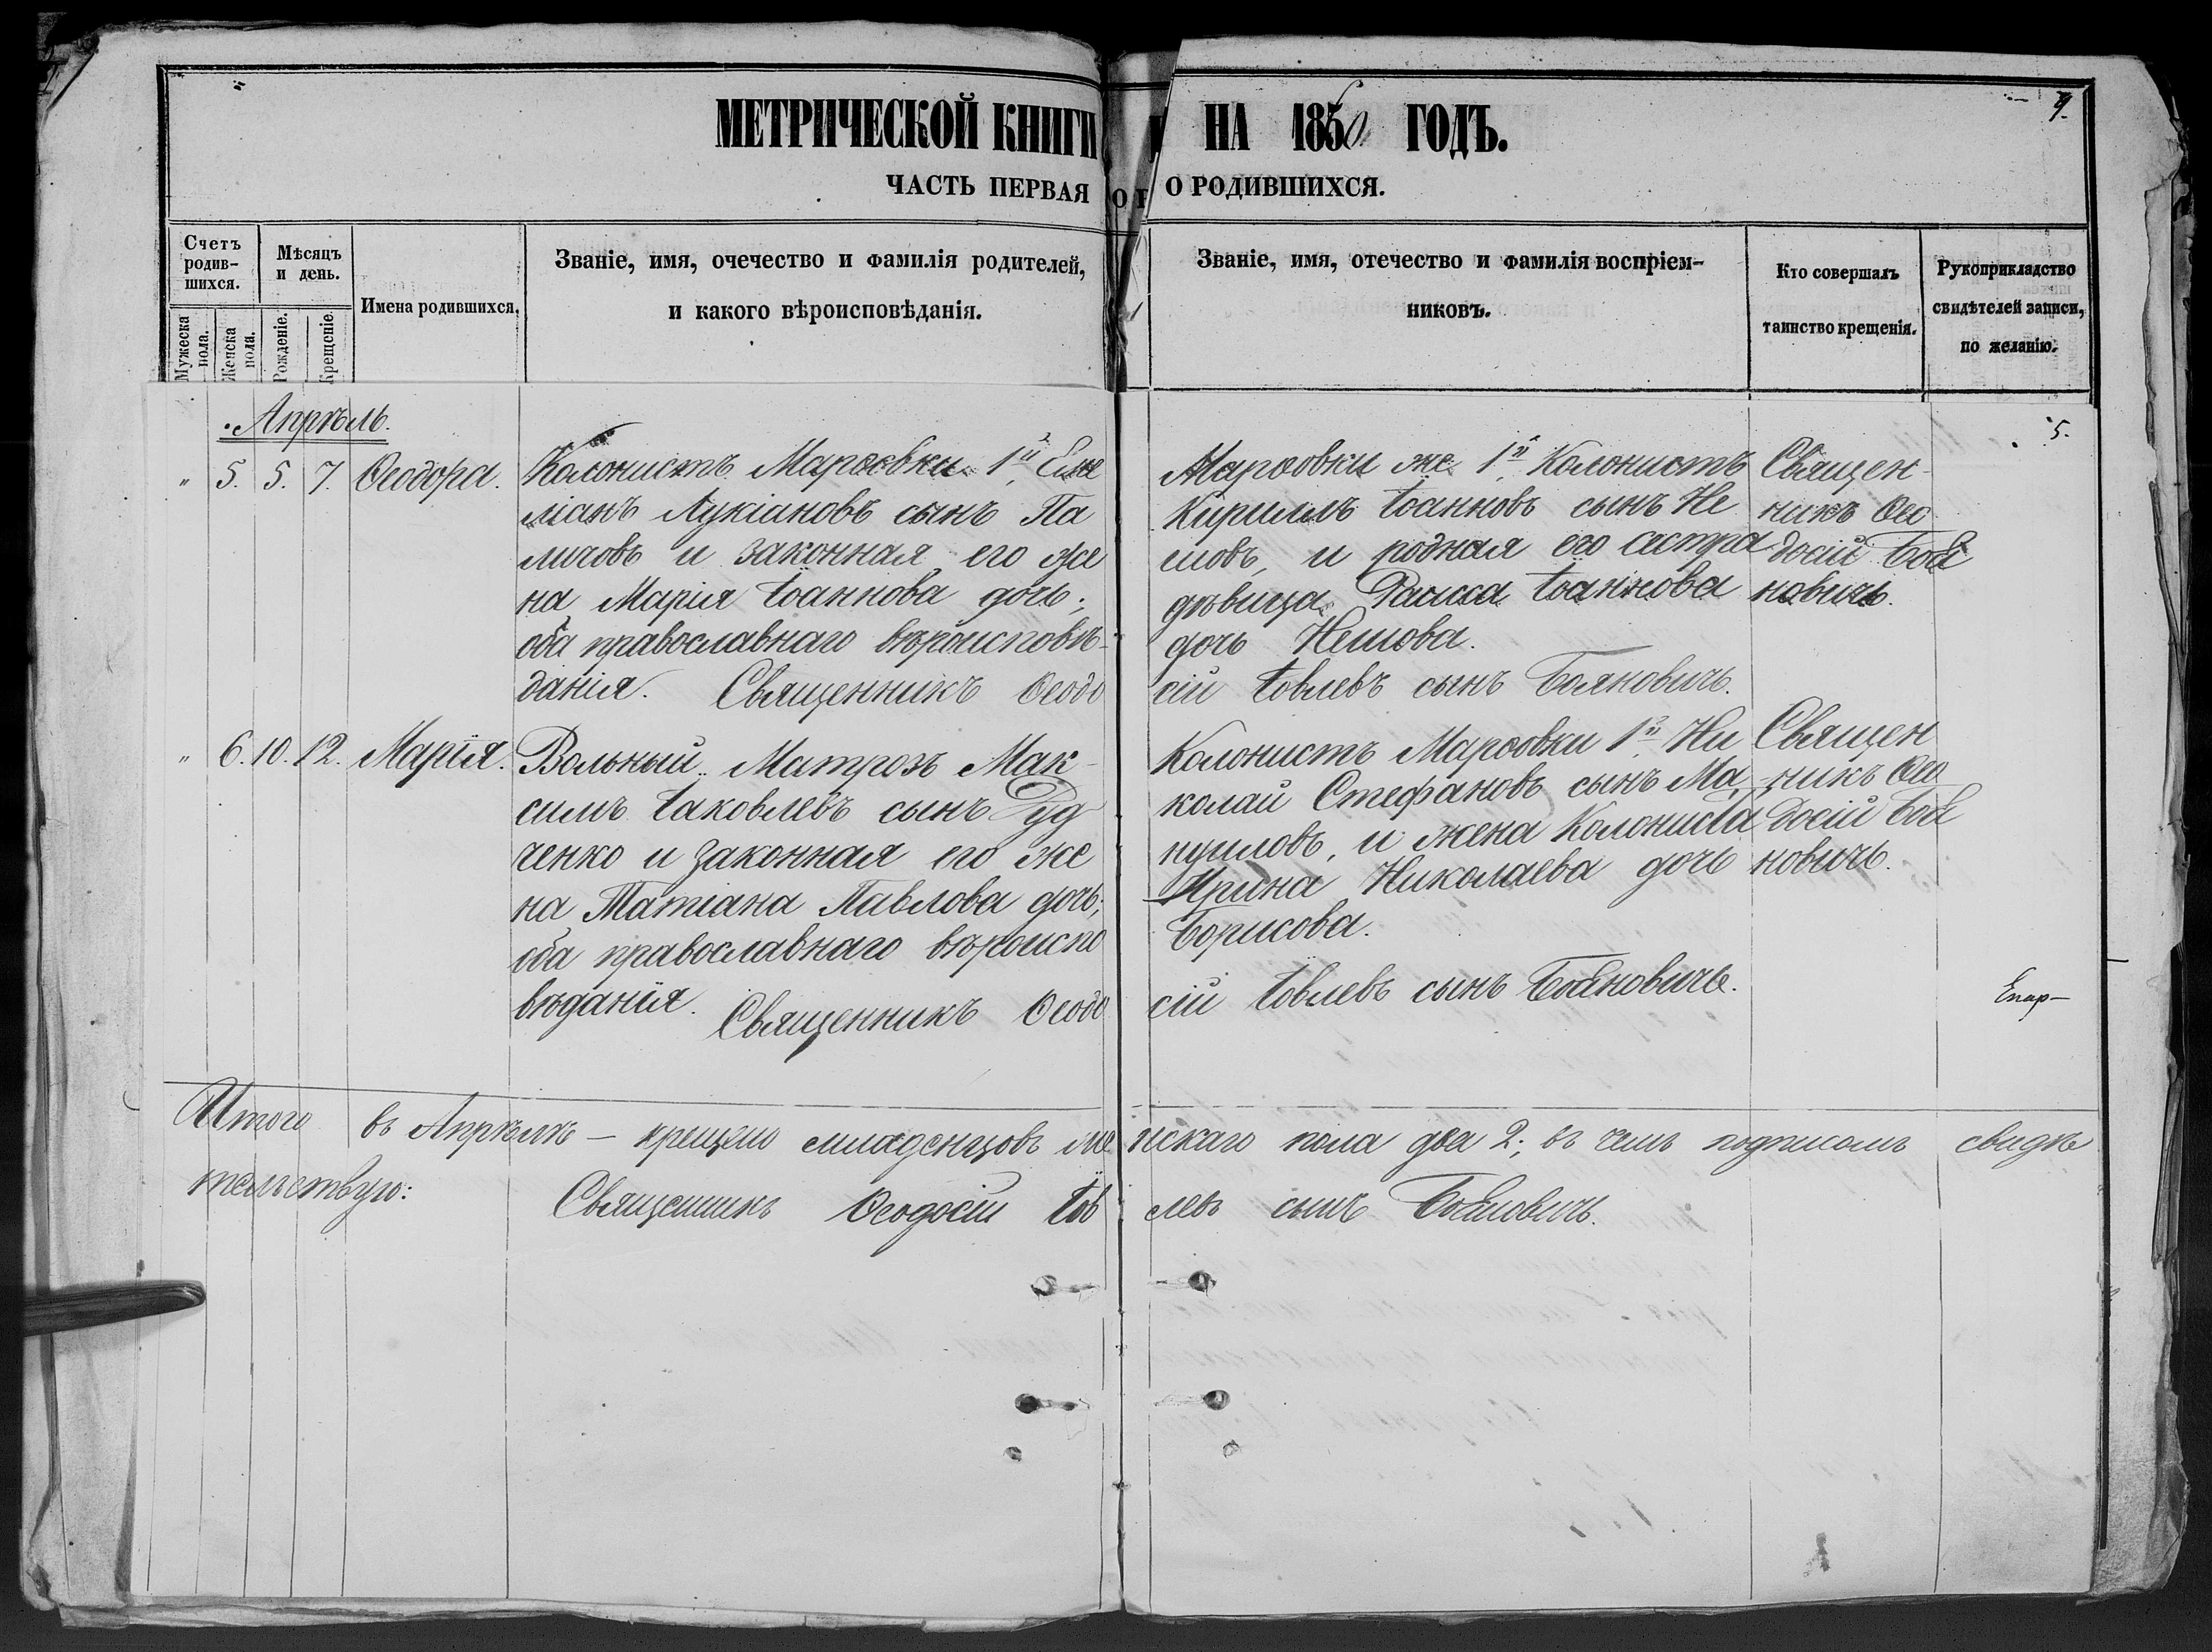 МЕТРИЧЕСКОЙ КНИГИ НА 1850 ГОДЪ.
9.
ЧАСТЬ ПЕРВАЯ О РОДИВШИХСЯ.
Счетъ родив-шихся.
Мужеска пола.
Женска пола.
Мѣсяцъ и день.
Рожденіе.
Крещеніе.
Имена родившихся.
Званіе, имя, очечество и фамилія родителей,
и какого вѣроисповѣданія.
Званіе, имя, отечество и фамилія воспріем-
никовъ.
Кто совершалъ
таинство крещенія.
Рукоприкладство
свидѣтелей записи,
по желанію.
Апрѣль.
5.
" 5. 5. 7. Ѳеодора.
Колонистъ Марѳовки 1й Еме
ліанъ Лукіановъ сынъ Па
личовъ и законная его же
на Марія Іоаннова дочь;
оба православнаго вѣроисповѣ-
данія. Священникъ Ѳеодо
Марѳовки же 1й Колонистъ
Кириллъ Іоанновъ сынъ Не
шовъ, и родная его сестра
дѣвица Раисса Іоаннова
дочь Нешова.
сій Іовлевъ сынъ Бояновичъ.
Священ-
никъ Ѳео
досій Боя
новичъ.
" 6. 10. 12. Марія.
Вольный Матрозъ Мак-
симъ Іаковлевъ сынъ Руд
ченко и законная его же
на Татіана Павлова дочь;
оба православнаго вѣроиспо
вѣданія. Священникъ Ѳеодо
Колонистъ Марѳовки 1й Ни
колай Стефановъ сынъ Ма-
нуиловъ, и жена Колониста
Ирина Николаева дочь
Борисова.
сій Іовлевъ сынъ Бояновичъ.
Священ
никъ Ѳео
досій Боя
новичъ.
Епар-
Итого въ Апрѣлѣ – крещено младенцовъ женскаго пола два 2; въ чемъ подписомъ свидѣ
тельствую: Священникъ Ѳеодосій Іовлевъ сынъ Бояновичъ.